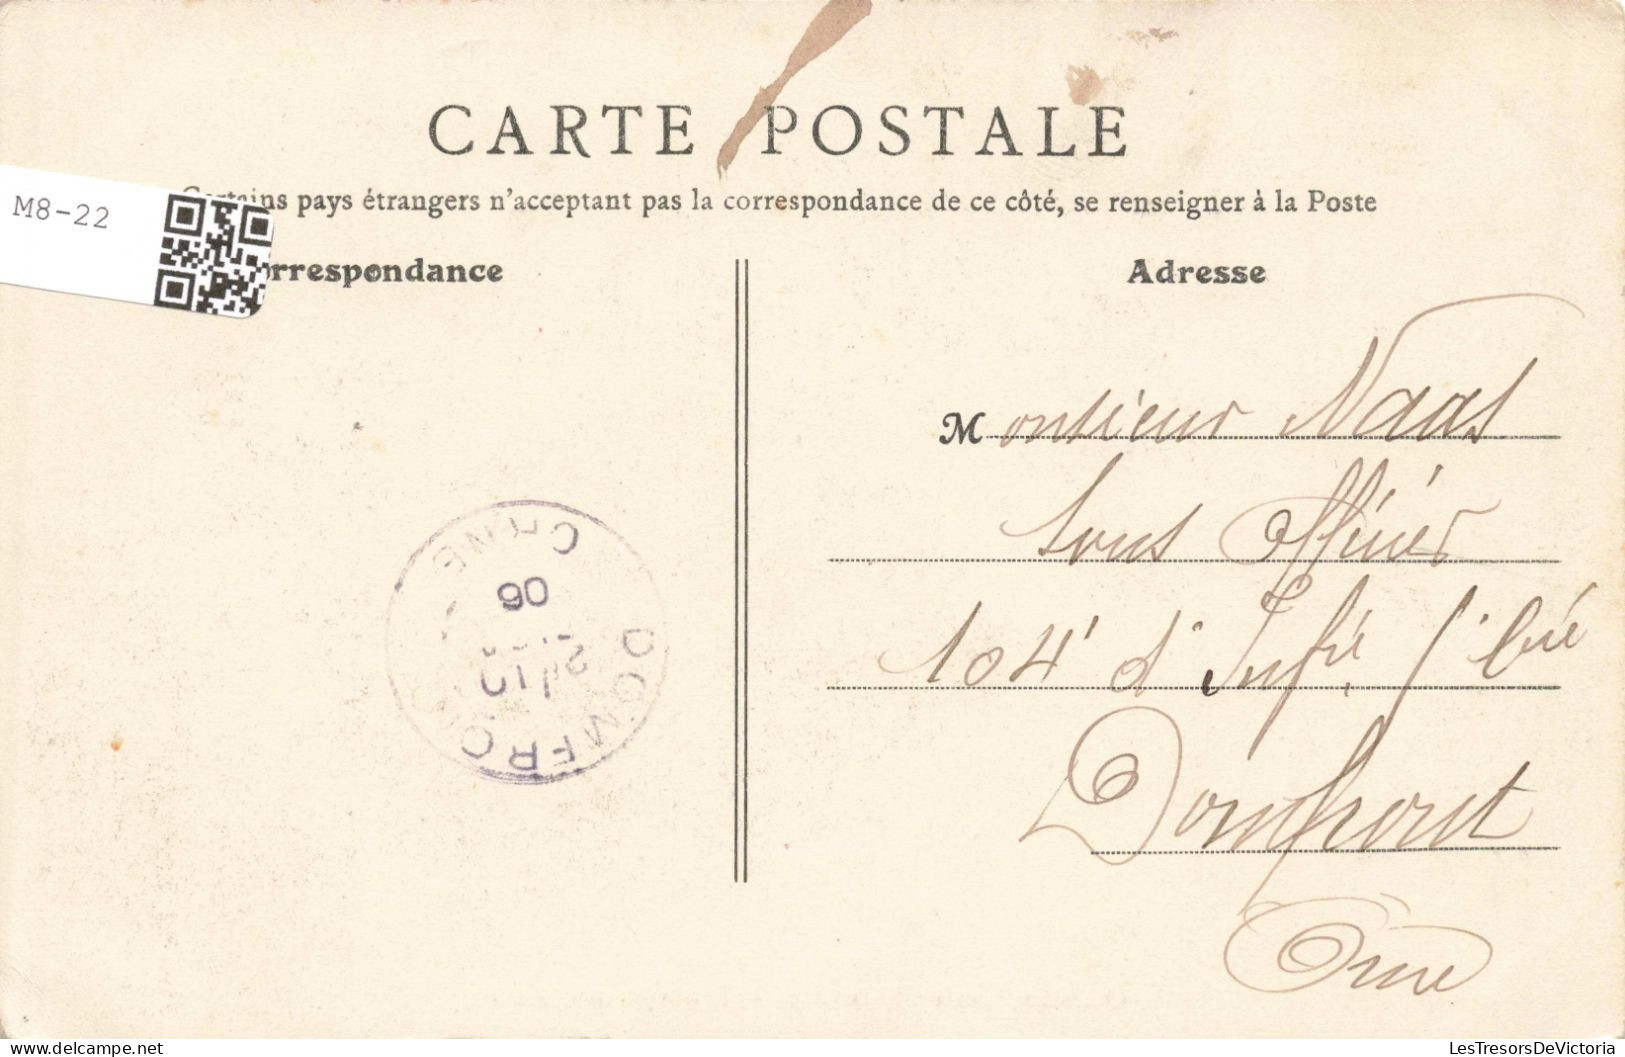 CARTE POSTALE
Certains pays étrangers n'acceptant pas la correspondance de ce côté, se renseigner à la Poste
M8-22
orrespondance
Adresse
Monsieur Naas
Sous Officier
104e d'Infie
Domfront
Orne
DOMFRO
ORNE
06
LesTresorsDeVictoria